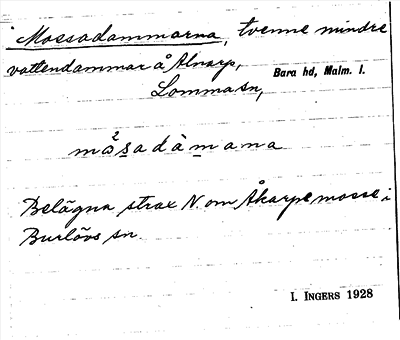 Mossadammarna, tvenne mindre
vattendammar å Alnarp,
Bara hd, Malm. l.
Lomma sn,
må²sadàmana
Belägna strax N. om Åkarps mosse i
Burlövs sn.
I. INGERS 1928